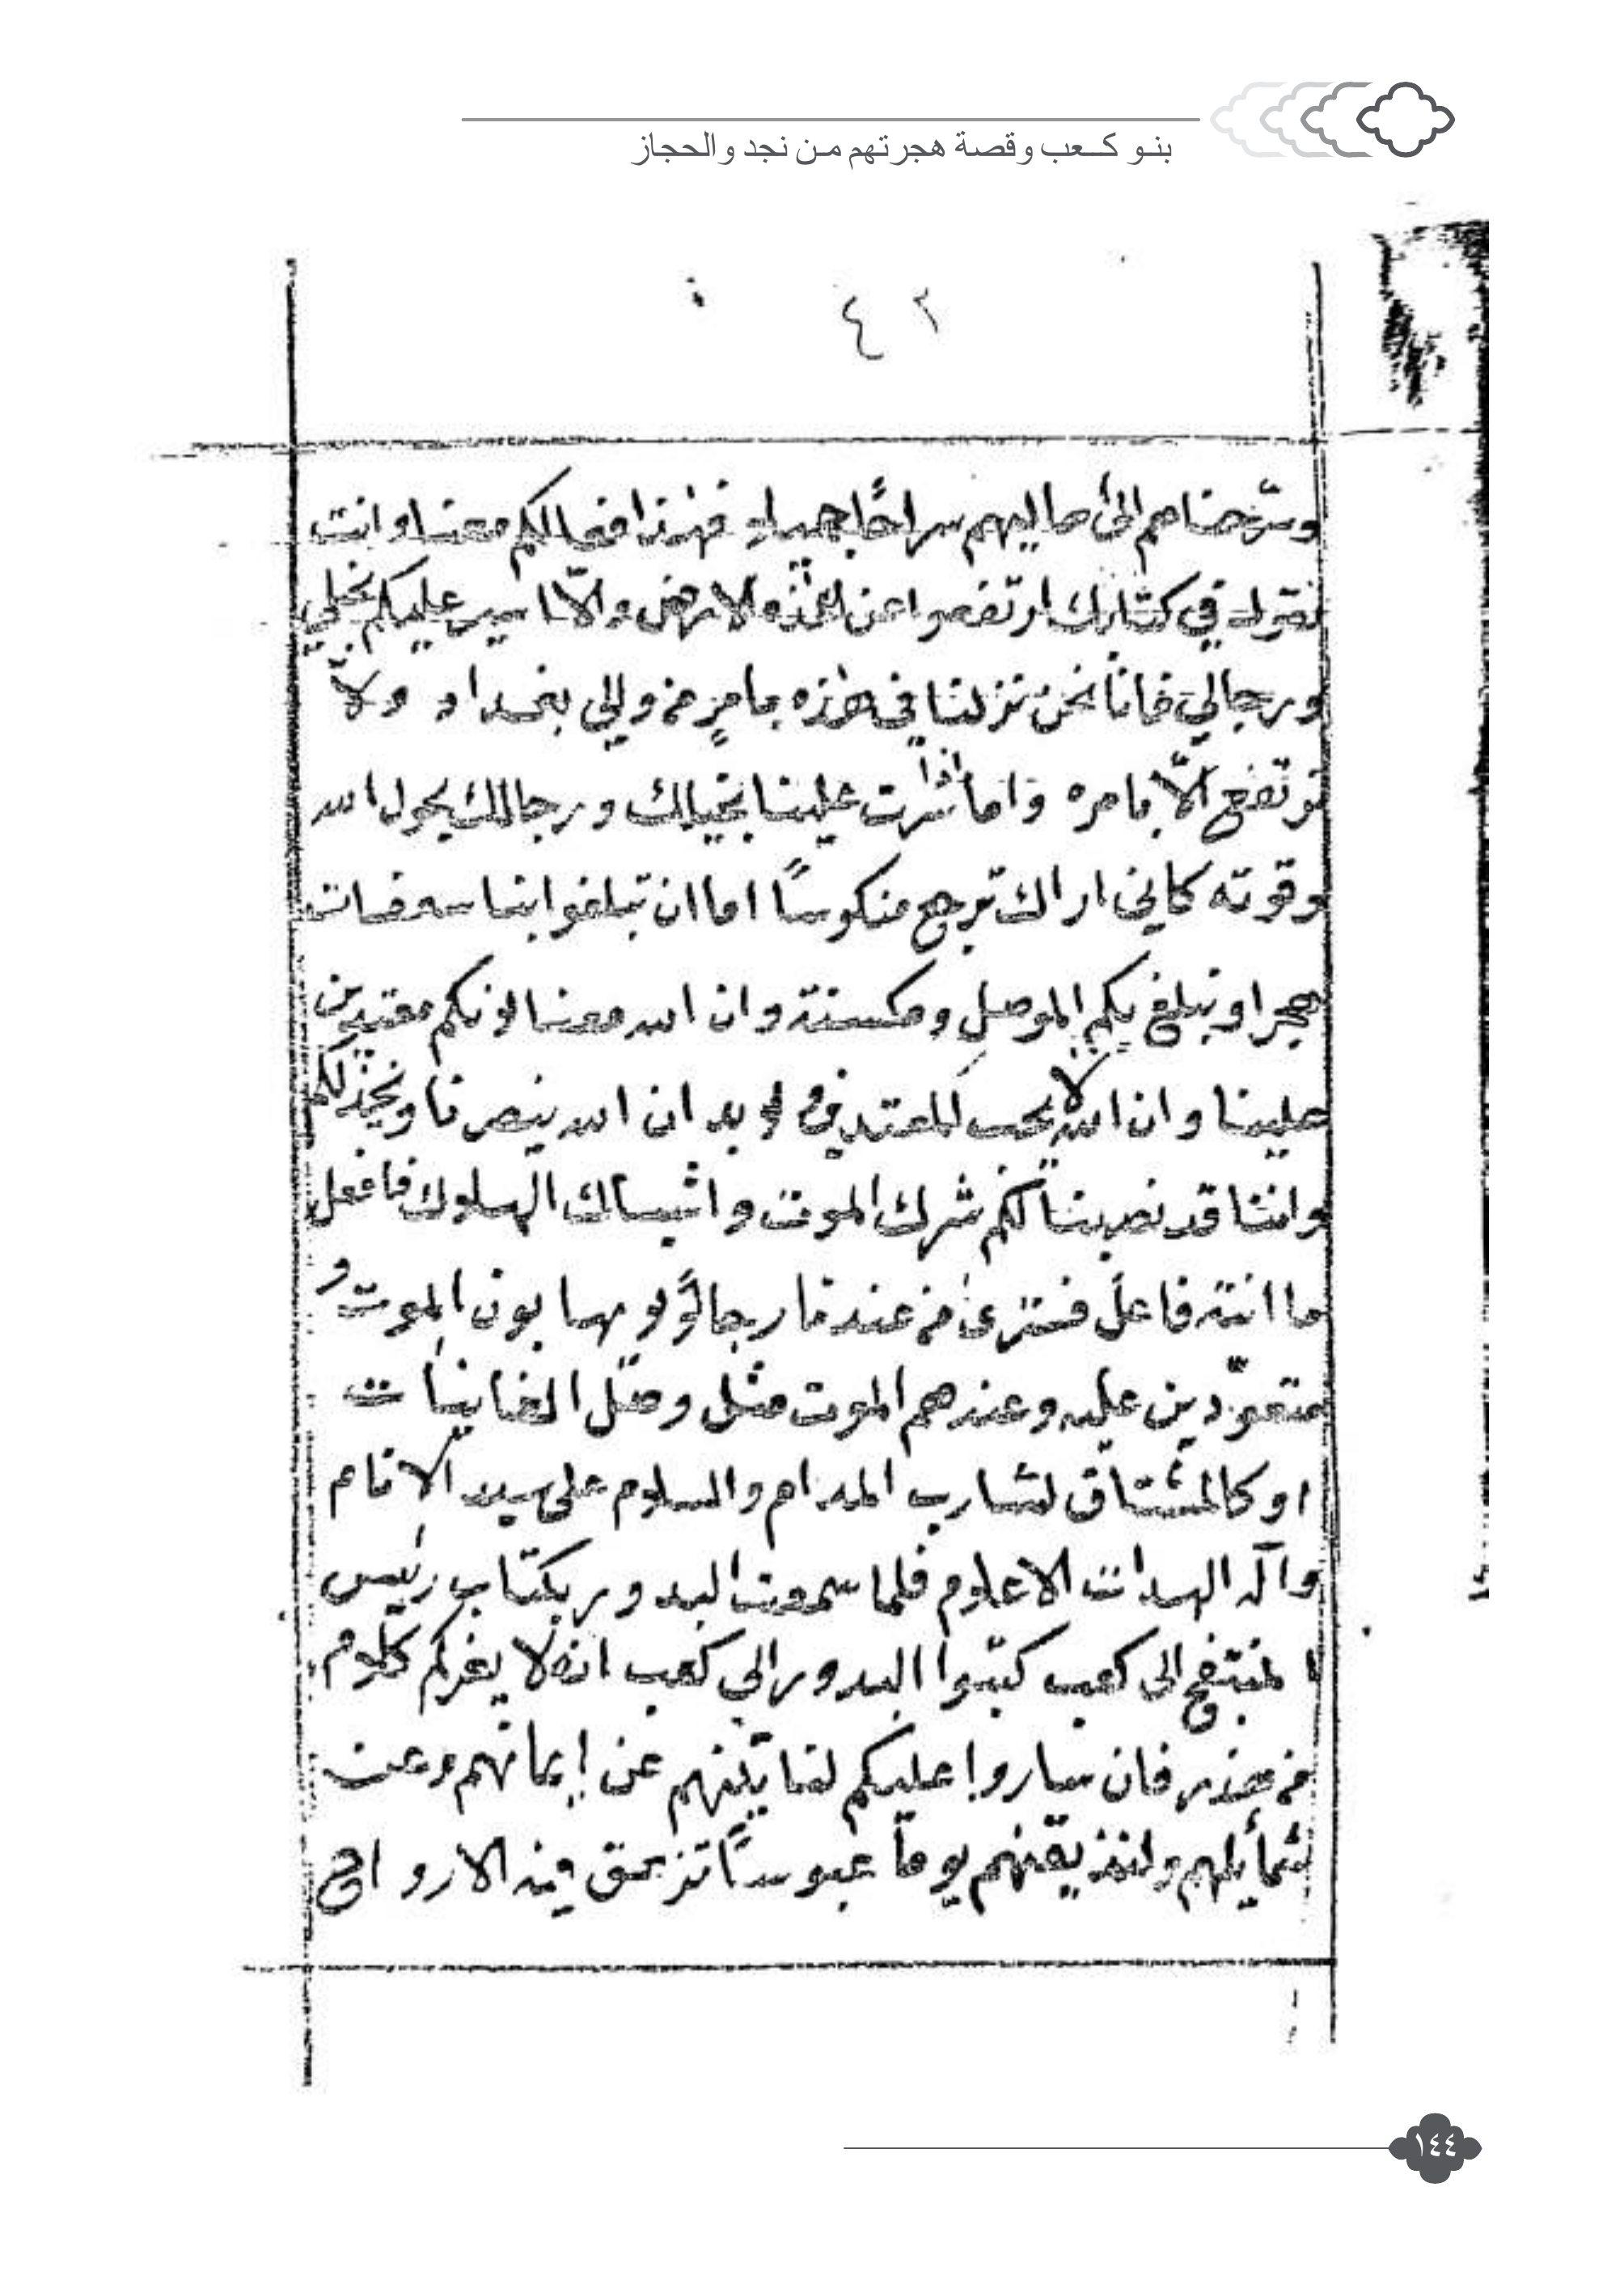 بنو كعب وقصة هجرتهم من نجد والحجاز
٤٢
وسرّحناهم الى اهاليهم سراحًا جميلا فهذا فعالكم معنا وانت
تقول في كتابك ارتفعوا عن هذه الارض والّا اسير عليكم بخيلي
ورجالي فانّا نحن نزلنا في هذه بامرٍ من والي بغداد ولا
نرتفع الّا بامره واما اشرت علينا بخيلك ورجالك بحول الله
وقوته كاني اراك ترجع منكوسًا اما ان تبلغوا بنا سعفات
هجر او نبلغ بكم الموصل ومكسنة وان الله معنا لانكم معتدين
علينا وان الله لا يحب المعتدين لا بد ان الله ينصرنا ويخذلكم
واننا قد نصبنا لكم شرك الموت واشباك الهلوك فافعل
ما انت فاعل فسترى من عندنا رجالًا لا يهابون الموت و
متعوّدين عليه وعندهم الموت مثل وصل الغانيات
او كالمشتاق لشارب المدام والسلام على سيد الانام
وآله الهدات الاعلام فلما سمعت البدور بكتاب رئيس
المنتفج الى كعب كتبوا البدور الى كعب انه لا يغركم كلام
من فان ساروا عليكم لنقاتلنهم عن إيمانهم وعن
شمايلهم ولنذيقنهم يومًا عبوسًا تزهق فيه الارواح
١٤٤